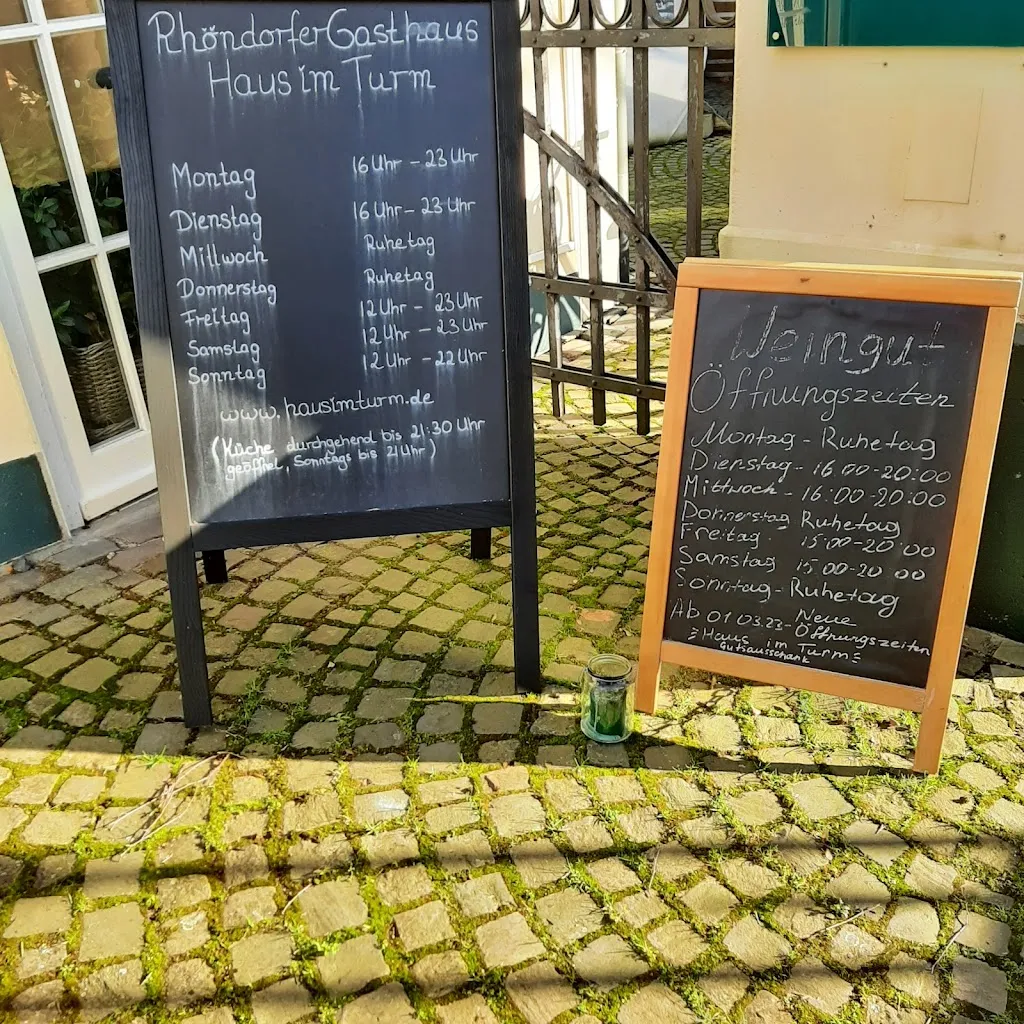 Rhöndorfer Gasthaus
Haus im Turm
Montag 16 Uhr - 23 Uhr
Dienstag 16 Uhr - 23 Uhr
Mittwoch Ruhetag
Donnerstag Ruhetag
Freitag 12 Uhr - 23 Uhr
Samstag 12 Uhr - 23 Uhr
Sonntag 12 Uhr - 22 Uhr
www.hausimturm.de
(Küche durchgehend bis 21:30 Uhr
geöffnet, Sonntags bis 21 Uhr)
Weingut
Öffnungszeiten
Montag - Ruhetag
Dienstag - 16:00-20:00
Mittwoch - 16:00-20:00
Donnerstag Ruhetag
Freitag - 15:00-20:00
Samstag 15:00-20:00
Sonntag - Ruhetag
Ab 01.03.23 - Neue
Öffnungszeiten
Haus im Turm
Gutsausschank